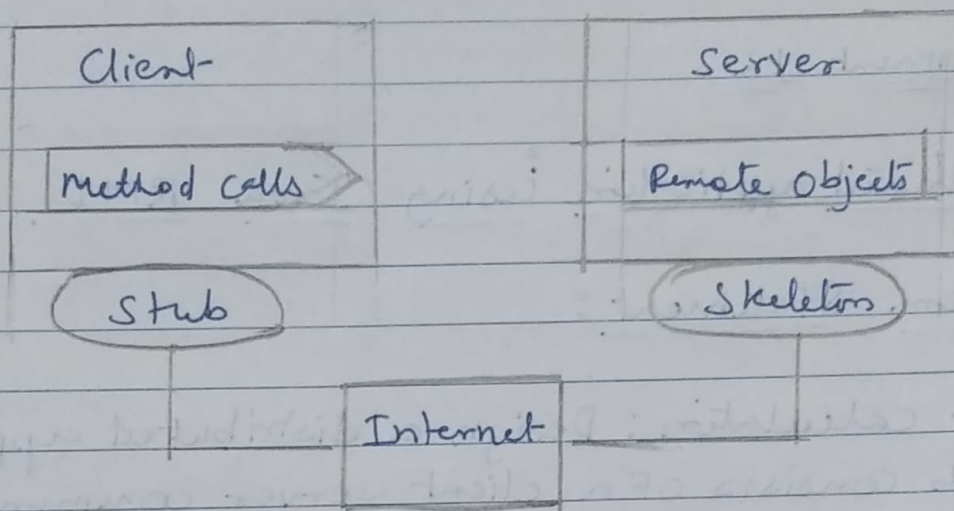 Client Server
Method calls Remote Objects
Stub Skeleton
Internet